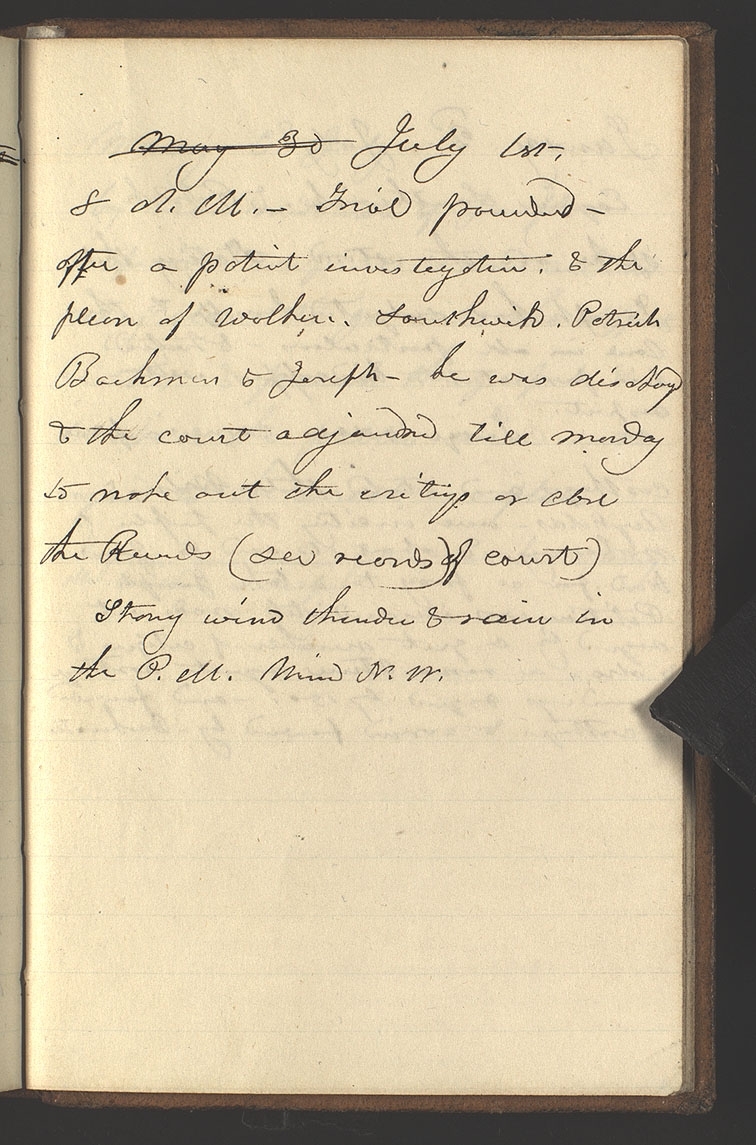 ~~May 3d~~ July 1st,
8 A. M. — Trial proceeded —
after a patient investigation, & the
pleas of Walker, Southwick, Patrick
Backman & Joseph — he was dischargd
& the court adjournd till Monday
to make out the writings or
the Records (see records of court)
Strong wind thunder & rain in
the P. M. Wind N. W.